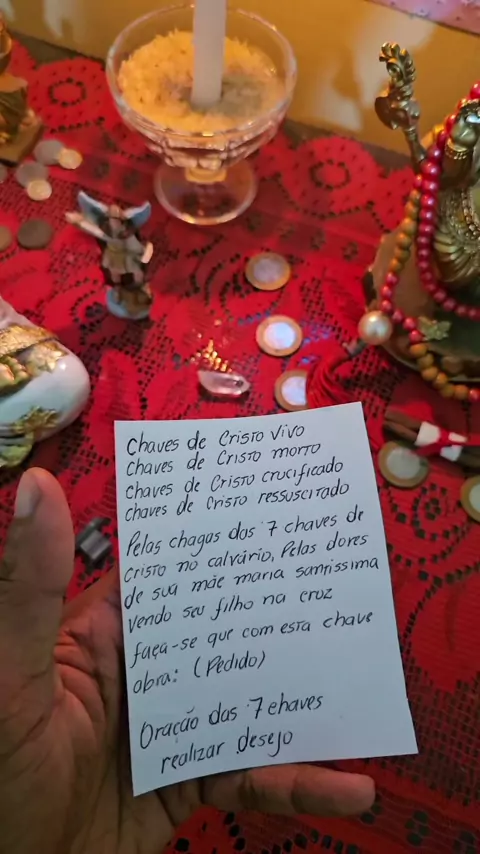 Chaves de Cristo vivo
Chaves de Cristo morto
Chaves de Cristo crucificado
chaves de Cristo ressuscitado
Pelas chagas das 7 chaves de
Cristo no calvário, Pelas dores
de sua mãe maria santissima
vendo seu filho na cruz
faça-se que com esta chave
obra: (Pedido)
Oração das 7 chaves
realizar desejo